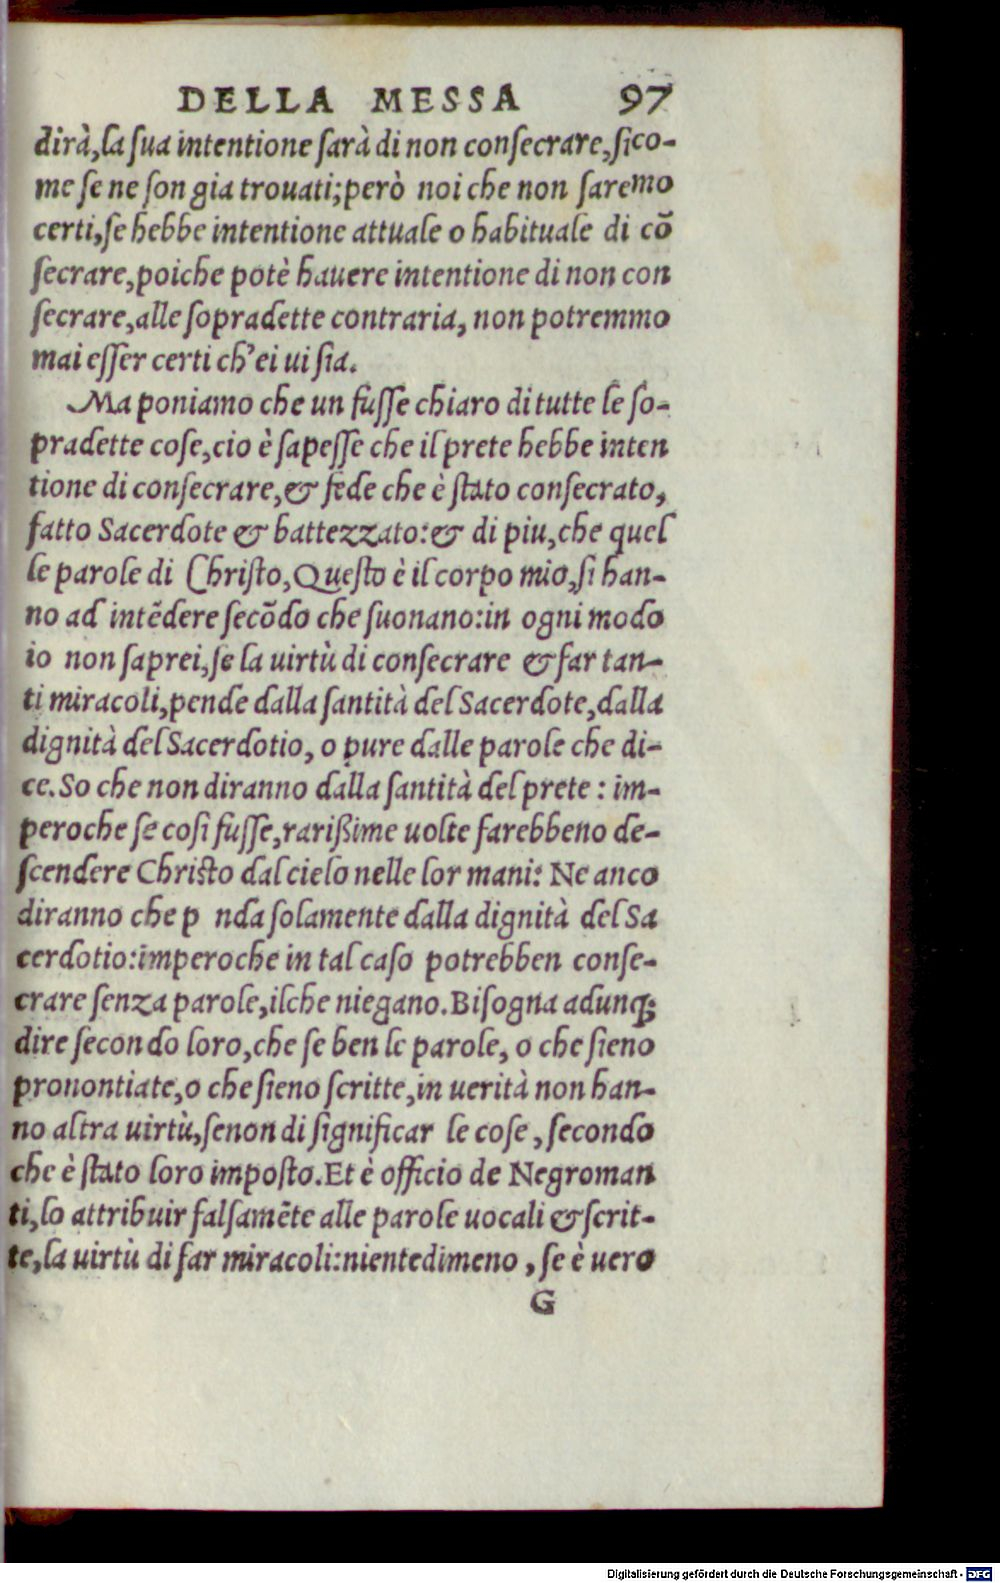 DELLA MESSA 97
dirà, la sua intentione sarà di non consecrare, sico-
me se ne son gia trouati; però noi che non saremo
certi, se hebbe intentione attuale o habituale di cõ
secrare, poiche potè hauere intentione di non con
secrare, alle sopradette contraria, non potremmo
mai esser certi ch'ei ui sia.
Ma poniamo che un fusse chiaro di tutte le so-
pradette cose, cio è sapesse che il prete hebbe inten
tione di consecrare, & fede che è stato consecrato,
fatto Sacerdote & battezzato: & di piu, che quel
le parole di Christo, Questo è il corpo mio, si han-
no ad intẽdere secõdo che suonano: in ogni modo
io non saprei, se la uirtù di consecrare & far tan-
ti miracoli, pende dalla santità del Sacerdote, dalla
dignità del Sacerdotio, o pure dalle parole che di-
ce. So che non diranno dalla santità del prete: im-
peroche se cosi fusse, rarißime uolte farebbeno de-
scendere Christo dal cielo nelle lor mani: Ne anco
diranno che p nda solamente dalla dignità del Sa
cerdotio: imperoche in tal caso potrebben conse-
crare senza parole, ilche niegano. Bisogna adunq;
dire secondo loro, che se ben le parole, o che sieno
pronontiate, o che sieno scritte, in uerità non han-
no altra uirtù, senon di significar le cose, secondo
che è stato loro imposto. Et è officio de Negroman
ti, lo attribuir falsamẽte alle parole uocali & scrit-
te, la uirtù di far miracoli: nientedimeno, se è uero
G
Digitalisierung gefördert durch die Deutsche Forschungsgemeinschaft - DFG